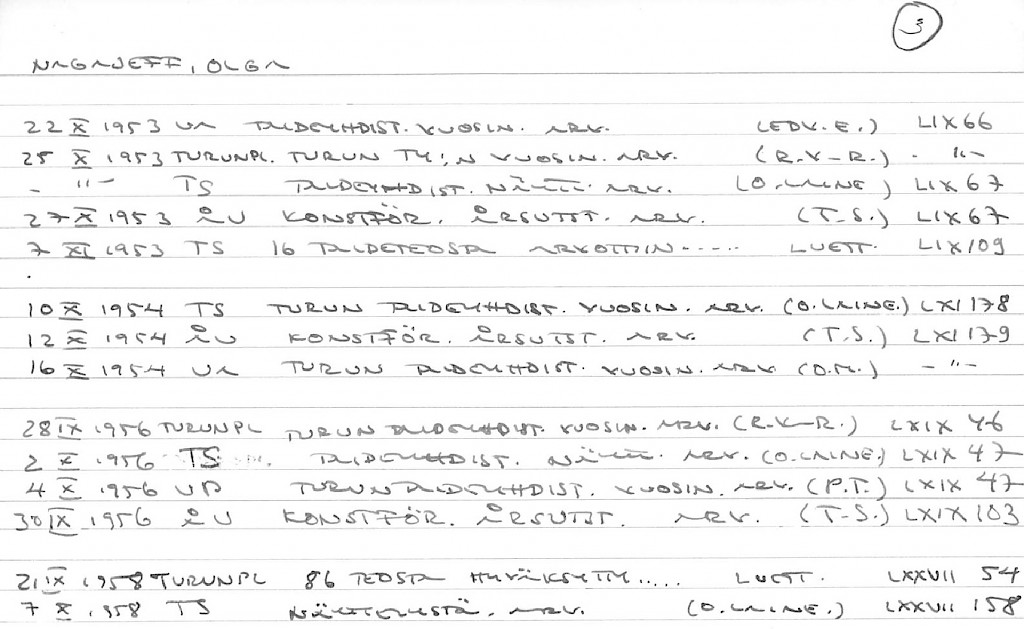 3
NAGAJEFF, OLGA
22 X 1953 UA TAIDEYHDIST. VUOSIN. ARV. (EDV. E.) LIX 66
25 X 1953 TURUNPL. TURUN TY:N VUOSIN. ARV. (R.V-R.) - " -
- " - TS TAIDEYHDIST. NÄYTT. ARV. (O. LAINE) LIX 67
27 X 1953 ÅU KONSTFÖR. ÅRSUTST. ARV. (T-S.) LIX 67
7 XI 1953 TS 16 TAIDETEOSTA ARVOTTIIN ..... LUETT. LIX 109
10 X 1954 TS TURUN TAIDEYHDIST. VUOSIN. ARV. (O. LAINE.) LXI 178
12 X 1954 ÅU KONSTFÖR. ÅRSUTST. ARV. (T.S.) LXI 179
16 X 1954 UA TURUN TAIDEYHDIST. VUOSIN. ARV. (O.M.) - " -
28 IX 1956 TURUNPL TURUN TAIDEYHDIST. VUOSIN. ARV. (R.V-R.) LXIX 46
2 X 1956 TS TAIDEYHDIST. NÄYTT. ARV. (O. LAINE.) LXIX 47
4 X 1956 UP TURUN TAIDEYHDIST. VUOSIN. ARV. (P.T.) LXIX 47
30 IX 1956 ÅU KONSTFÖR. ÅRSUTST. ARV. (T-S.) LXIX 103
21 IX 1958 TURUNPL 86 TEOSTA HYVÄKSYTTY ..... LUETT. LXXVII 54
7 X 1958 TS NÄYTTELYSTÄ. ARV. (O. LAINE.) LXXVII 158